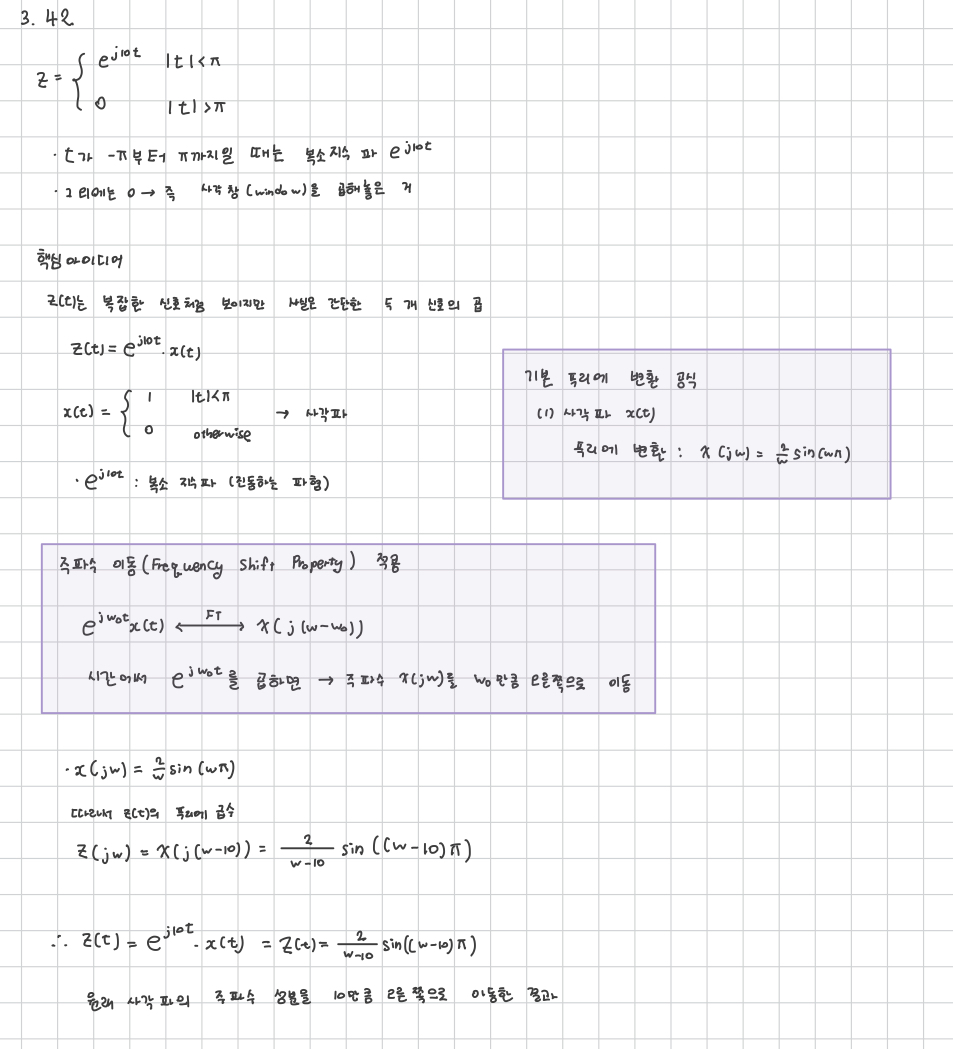 3. 42
z = { e^{j10t} |t| < π
0 |t| > π
· t가 -π부터 π까지일 때는 복소지수 파 e^{j10t}
· 그 외에는 0 → 즉 사각창(window)를 곱해놓은 거
핵심 아이디어
z(t)는 복잡한 신호처럼 보이지만 사실은 간단한 두 개 신호의 곱
z(t) = e^{j10t} · x(t)
x(t) = { 1 |t|<π → 사각파
0 otherwise
· e^{j10t} : 복소 지수파 (진동하는 파형)
기본 푸리에 변환 공식
(1) 사각파 x(t)
푸리에 변환 : X(jw) = 2/w sin(wπ)
주파수 이동(Frequency Shift Property) 적용
e^{jw₀t}x(t) ←FT→ X(j(w-w₀))
시간에서 e^{jw₀t}를 곱하면 → 주파수 X(jw)를 w₀만큼 오른쪽으로 이동
· x(jw) = 2/w sin(wπ)
따라서 z(t)의 푸리에 급수
Z(jw) = X(j(w-10)) = 2/(w-10) sin((w-10)π)
∴ z(t) = e^{j10t} · x(t) = Z(t) = 2/(w-10) sin((w-10)π)
원래 사각파의 주파수 성분을 10만큼 오른쪽으로 이동한 결과